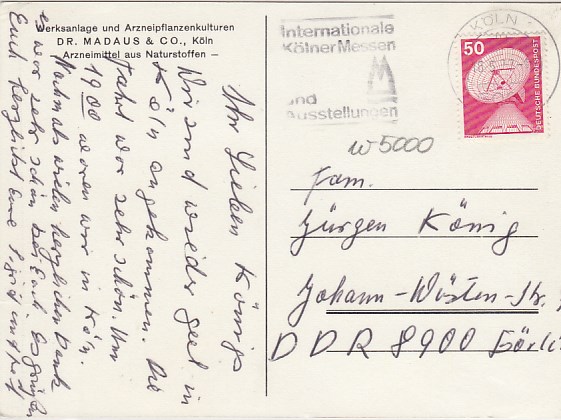 Werksanlage und Arzneipflanzenkulturen
DR. MADAUS & CO., Köln
Arzneimittel aus Naturstoffen —
Ihr Lieben Königs
Wir sind wieder gut in
Köln angekommen. Die
Fahrt war sehr schön. Um
19 00 waren wir in Köln.
Nochmals vielen herzlichen Dank
es war sehr schön bei Euch. Es grüßen
Euch herzlichst Eure
Internationale
Kölner Messen
und
Ausstellungen
KÖLN
50
DEUTSCHE BUNDESPOST
W5000
Fam.
Jürgen König
Johann-Wüsten-Str.
DDR 8900 Görli